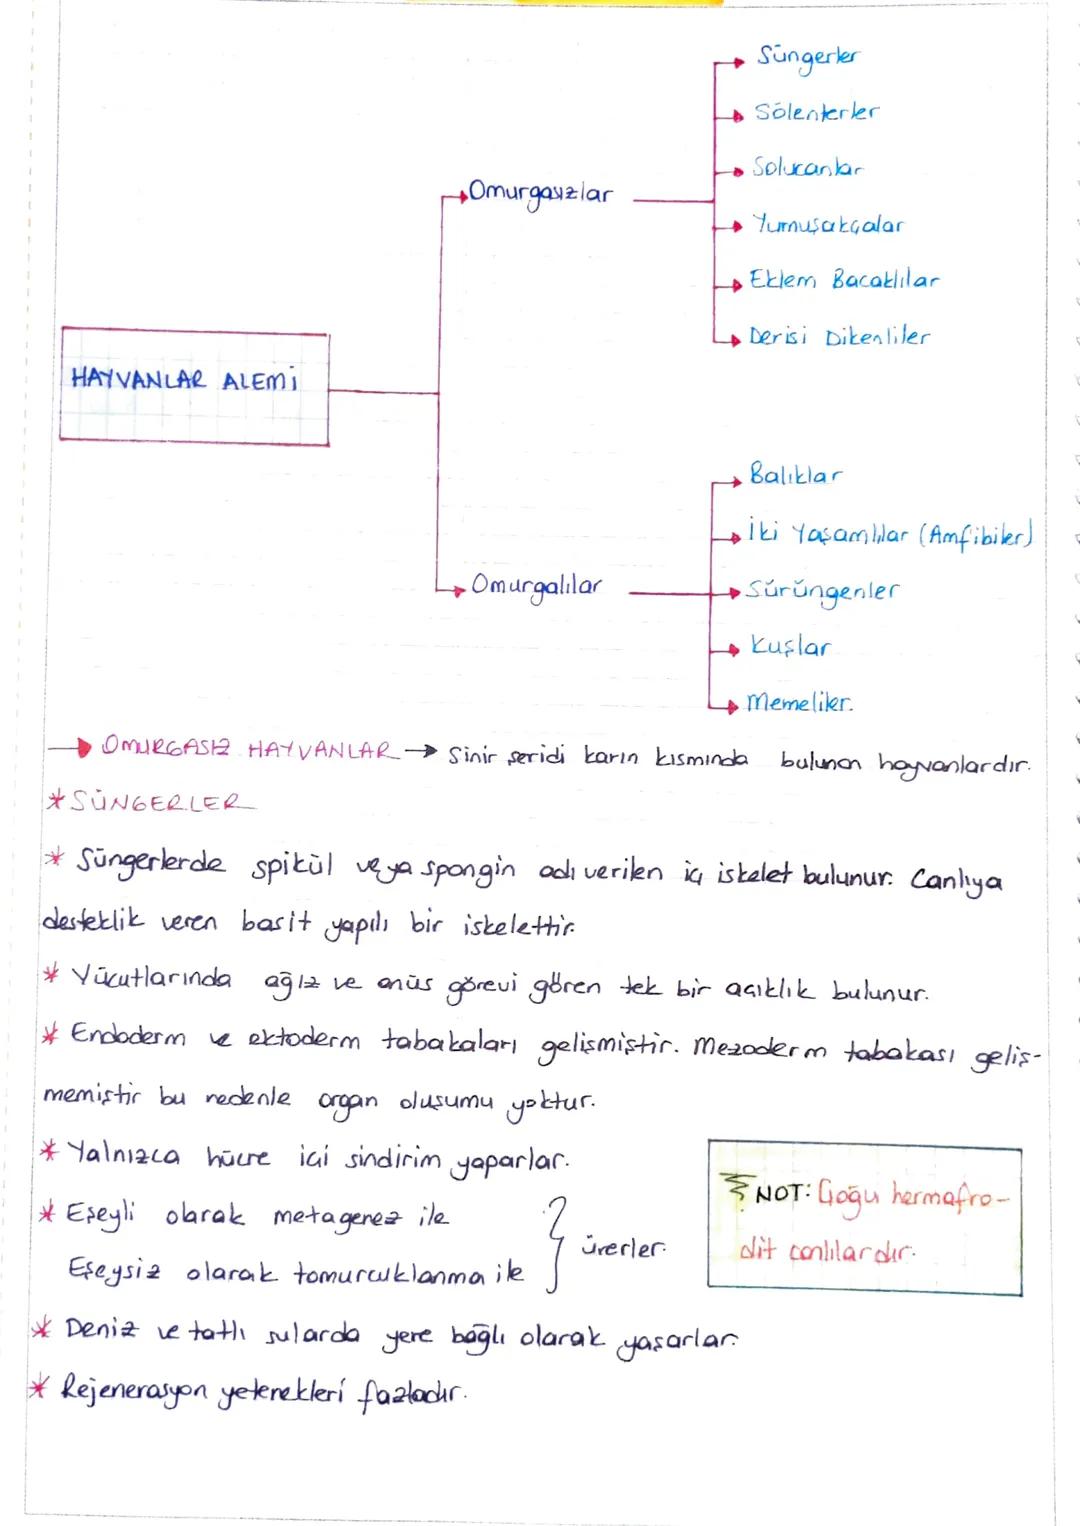 Süngerler
Sölenterler
Solucanlar
Omurgasızlar
Yumuşakçalar
Eklem Bacaklılar
Derisi Dikenliler
HAYVANLAR ALEMİ
Balıklar
İki Yaşamlılar (Amfibiler)
Omurgalılar
Sürüngenler
Kuşlar
Memeliler.
→ OMURGASIZ HAYVANLAR → Sinir şeridi karın kısmında bulunan hayvanlardır.
* SÜNGERLER
* Süngerlerde spikül veya spongin adı verilen iç iskelet bulunur. Canlıya
desteklik veren basit yapılı bir iskelettir.
* Vücutlarında ağız ve anüs görevi gören tek bir açıklık bulunur.
* Endoderm ve ektoderm tabakaları gelişmiştir. Mezoderm tabakası geliş-
memiştir bu nedenle organ oluşumu yoktur.
* Yalnızca hücre içi sindirim yaparlar.
* Eşeyli olarak metagenez ile
Eşeysiz olarak tomurcuklanma ile } ürerler.
NOT: Çoğu hermafro-
dit canlılardır.
* Deniz ve tatlı sularda yere bağlı olarak yaşarlar.
* Rejenerasyon yetenekleri fazladır.